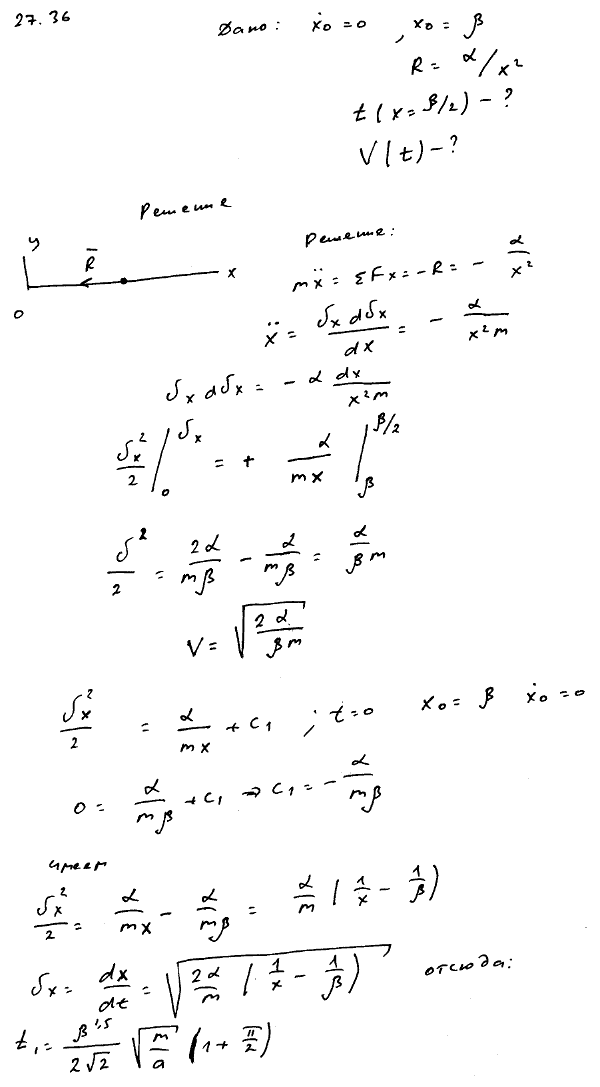 27.36
Дано: ẋ₀ = 0 , x₀ = β
R = α/x²
t(x = β/2) - ?
V(t) - ?
Решение
y R̄ x
0
Решение:
mẍ = ΣFx = -R = - α/x²
ẍ = υx dυx/dx = - α/(x²m)
υx dυx = - α dx/(x²m)
υx²/2 |₀^υx = + α/(mx) |_β^β/2
υ²/2 = 2α/(mβ) - α/(mβ) = α/(βm)
V = √(2α/(βm))
υx²/2 = α/(mx) + C₁ ; t = 0 x₀ = β ẋ₀ = 0
0 = α/(mβ) + C₁ ⇒ C₁ = - α/(mβ)
имеем
υx²/2 = α/(mx) - α/(mβ) = α/m (1/x - 1/β)
υx = dx/dt = √(2α/m (1/x - 1/β)) отсюда:
t₁ = β^1,5/(2√2) √(m/a) (1 + π/2)